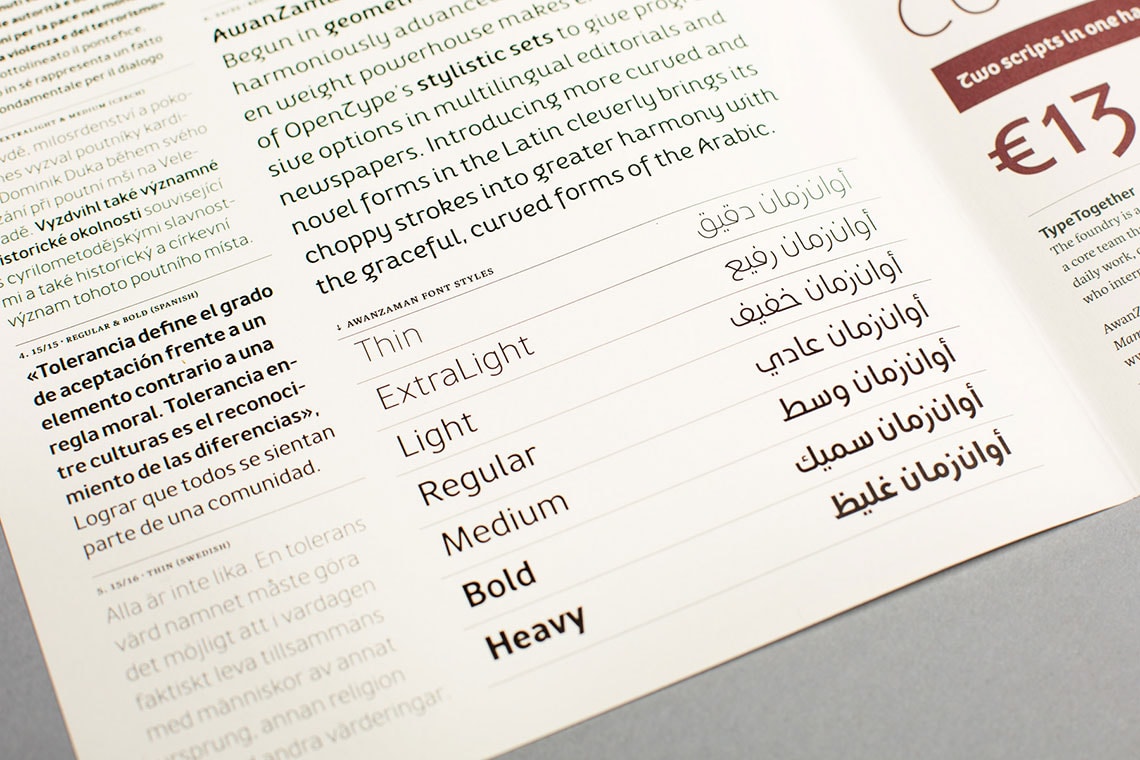 autorità e
per la pace nel
violenza e del terrorismo»
ottolineato il pontefice,
in sé rappresenta un fatto
ondamentale per il dialogo
EXTRALIGHT & MEDIUM (CZECH)
milosrdenství a poko-
vyzval poutníky kardi-
Dominik Duka během svého
zání při poutní mši na Vele-
Vyzdvihl také významné
istorické okolnosti související
s cyrilometodějskými slavnost-
mi a také historický a církevní
význam tohoto poutního místa.
4. 15/15 · REGULAR & BOLD (SPANISH)
«Tolerancia define el grado
de aceptación frente a un
elemento contrario a una
regla moral. Tolerancia en-
tre culturas es el reconoci-
miento de las diferencias»,
Lograr que todos se sientan
parte de una comunidad.
5. 15/16 · THIN (SWEDISH)
Alla är inte lika. En tolerans
värd namnet måste göra
det möjligt att i vardagen
faktiskt leva tillsammans
med människor av annat
ursprung, annan religion
andra värderingar.
Begun in
harmoniously advanced
en weight powerhouse makes
of OpenType's stylistic sets to give
sive options in multilingual editorials and
newspapers. Introducing more curved and
novel forms in the Latin cleverly brings its
choppy strokes into greater harmony with
the graceful, curved forms of the Arabic.
↓ AWANZAMAN FONT STYLES
Thin أوان‌زمان دقيق
ExtraLight أوان‌زمان رفيع
Light أوان‌زمان خفيف
Regular أوان‌زمان عادي
Medium أوان‌زمان وسط
Bold أوان‌زمان سميك
Heavy أوان‌زمان غليظ
Two scripts in one
€13
TypeTogether
The foundry is
a core team
daily work,
who